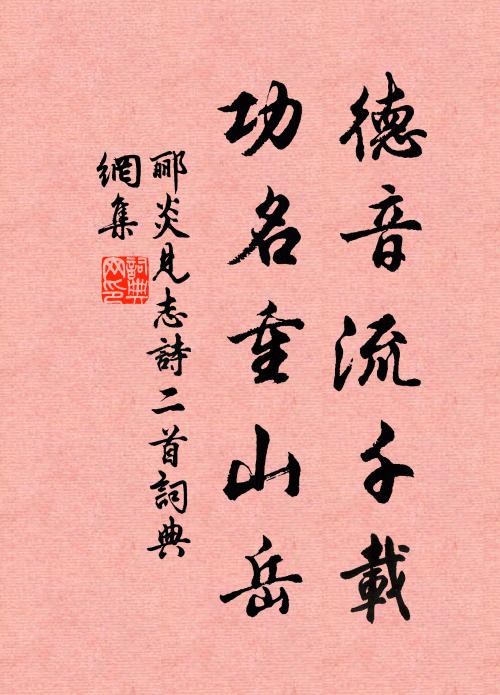 德音流千載
功名重山岳
酈炎見志詩二首詞典
網集
詞典
网印